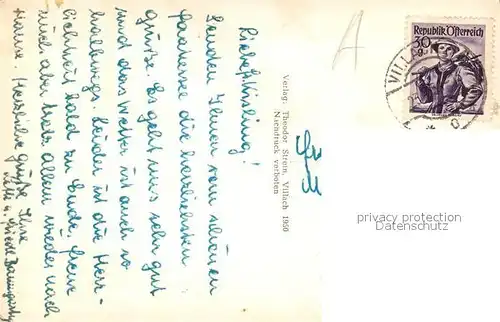 Liebe Kisling!
Senden Ihnen vom schönen
Faakersee die herzlichsten
Grüße. Es geht uns sehr gut
und das Wetter ist auch so
halbwegs. Leider ist die Herr-
lichkeit bald zu Ende, freue
mich aber trotz allem wieder nach
Hause. Herzliche Grüße Ihre
Verlag: Theodor Strein, Villach 1950
Nachdruck verboten
Republik Österreich
30
g
VILL
privacy protection
Datenschutz